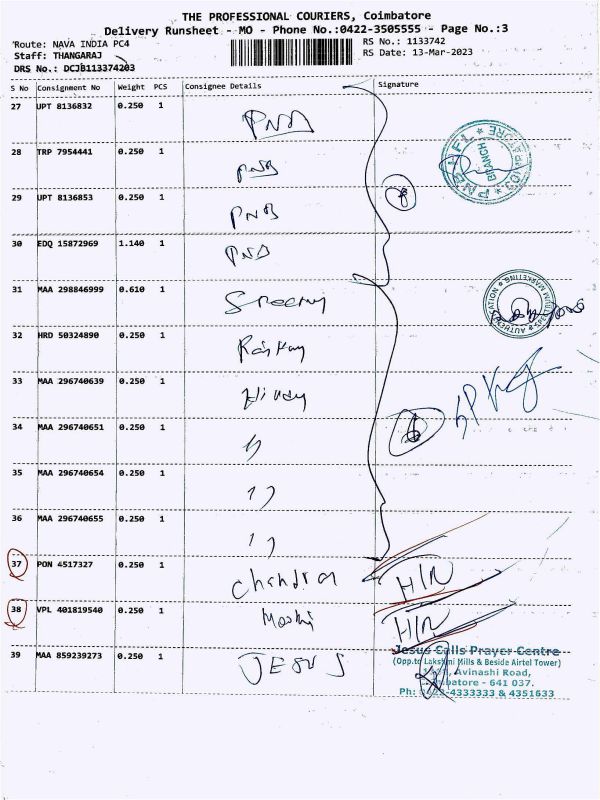 THE PROFESSIONAL COURIERS, Coimbatore
Delivery Runsheet - MO - Phone No.:0422-3505555 - Page No.:3
Route: NAVA INDIA PC4
RS No.: 1133742
Staff: THANGARAJ
RS Date: 13-Mar-2023
DRS No.: DCJB113374203
S No Consignment No Weight PCS Consignee Details Signature
27 UPT 8136832 0.250 1 PNB
28 TRP 7954441 0.250 1 PNB
29 UPT 8136853 0.250 1 PNB
30 EDQ 15872969 1.140 1 PNB
31 MAA 298846999 0.610 1
32 HRD 50324890 0.250 1
33 MAA 296740639 0.250 1
34 MAA 296740651 0.250 1 "
35 MAA 296740654 0.250 1 "
36 MAA 296740655 0.250 1 "
37 PON 4517327 0.250 1 Chandra H/R
38 VPL 401819540 0.250 1 H/R
39 MAA 859239273 0.250 1 JESUS
PNB HFL ★ COIMBATORE ★
BRANCH
Jesus Calls Prayer Centre
(Opp.to Lakshmi Mills & Beside Airtel Tower)
Avinashi Road,
Coimbatore - 641 037.
Ph: 0422-4333333 & 4351633